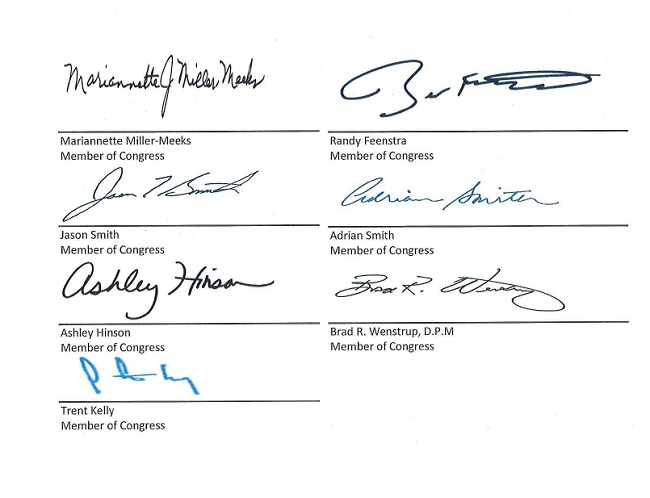 Mariannette J Miller-Meeks
Mariannette Miller-Meeks
Member of Congress
Randy Feenstra
Member of Congress
Jason T Smith
Adrian Smith
Jason Smith
Member of Congress
Adrian Smith
Member of Congress
Ashley Hinson
Brad R. Wenstrup
Ashley Hinson
Member of Congress
Brad R. Wenstrup, D.P.M
Member of Congress
Trent Kelly
Member of Congress